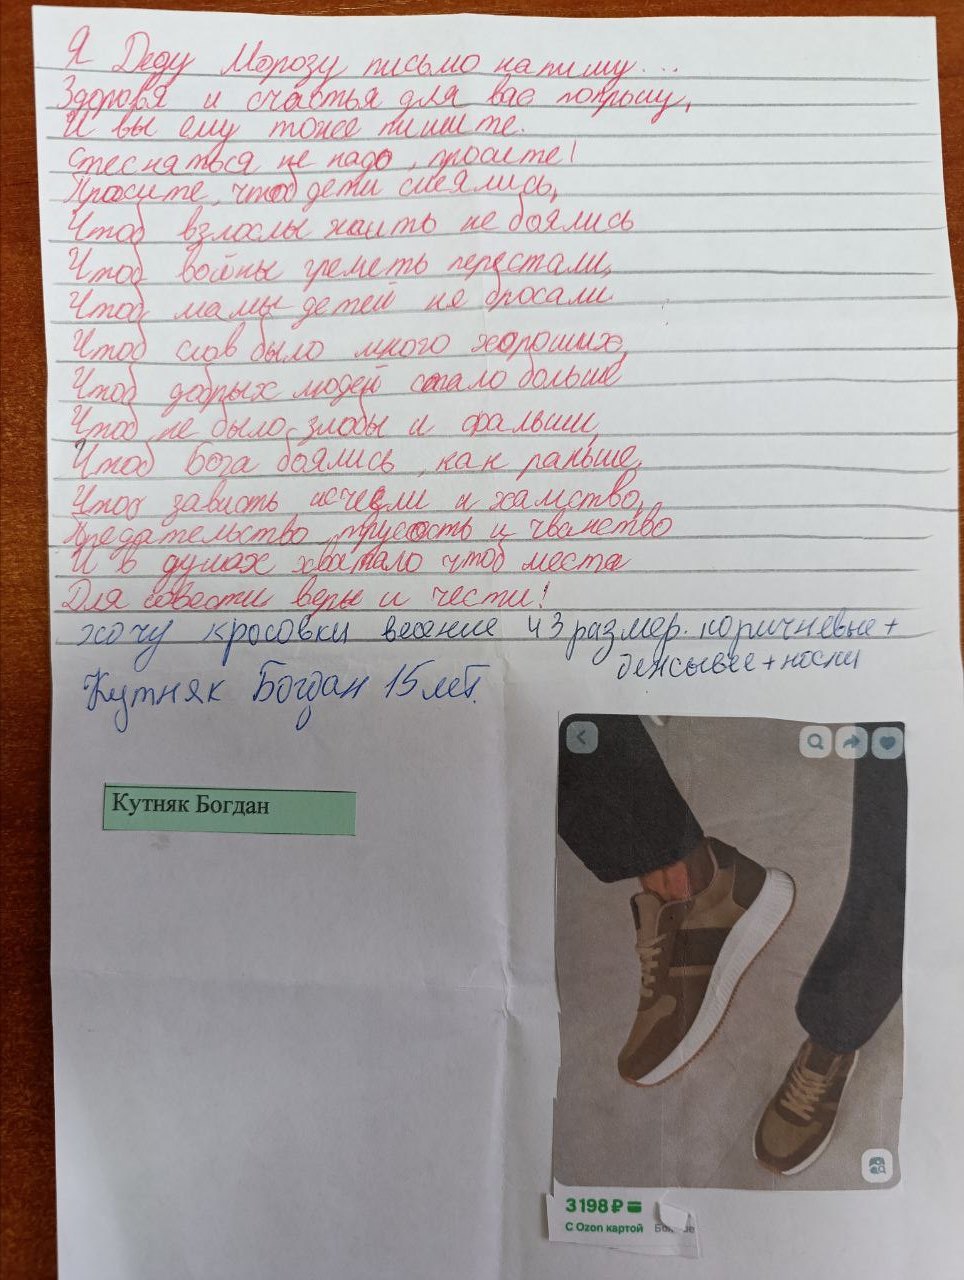 Я Деду Морозу письмо напишу...
Здоровя и счастья для вас попрошу,
И вы ему тоже пишите.
Стесняться не надо, просите!
Просите, чтоб дети смеялись,
Чтоб взлослы жить не боялись
Чтоб войны греметь перестали,
Чтоб мамы детей не бросали
Чтоб слов было много хороших,
Чтоб добрых людей стало больше
Чтоб не было злобы и фальши,
Чтоб бога боялись, как раньше,
Чтоб зависть исчезли и хамство,
Предательство, трусость и чванство
И в душах хватало чтоб места
Для совести, веры и чести!
хочу кросовки весение 43 размер. коричневые +
бежывые + носки
Кутняк Богдан 15 лет.
Кутняк Богдан
3 198 ₽
С Ozon картой